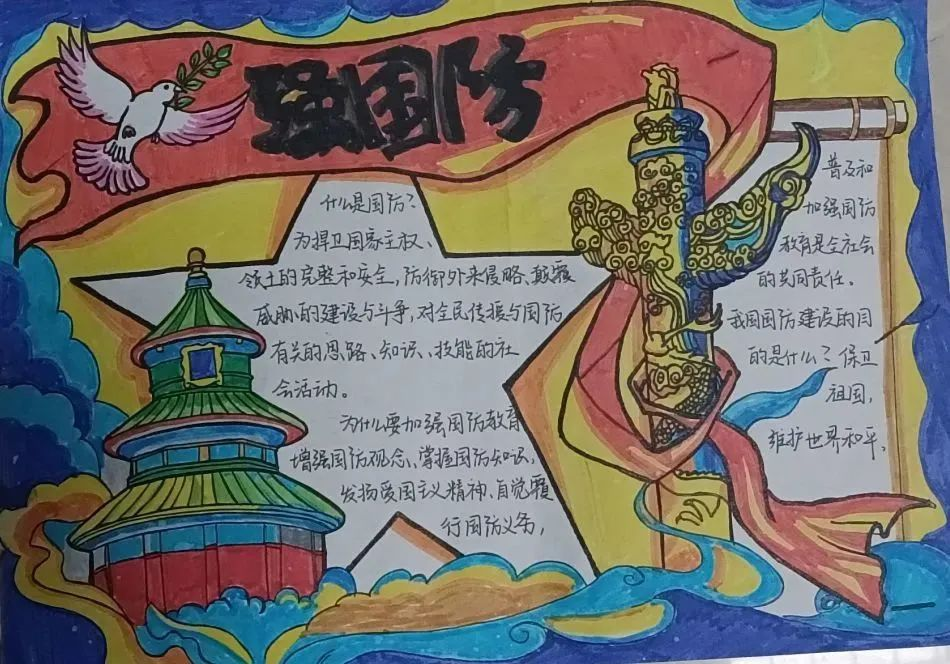 强国防
什么是国防?
为捍卫国家主权、
领土的完整和安全,防御外来侵略、颠覆
威胁的建设与斗争,对全民传授与国防
有关的思路、知识、技能的社
会活动。
为什么要加强国防教育
增强国防观念、掌握国防知识、
发扬爱国主义精神、自觉覆
行国防义务,
普及和
加强国防
教育是全社会
的共同责任。
我国国防建设的目
的是什么?保卫
祖国,
维护世界和平,